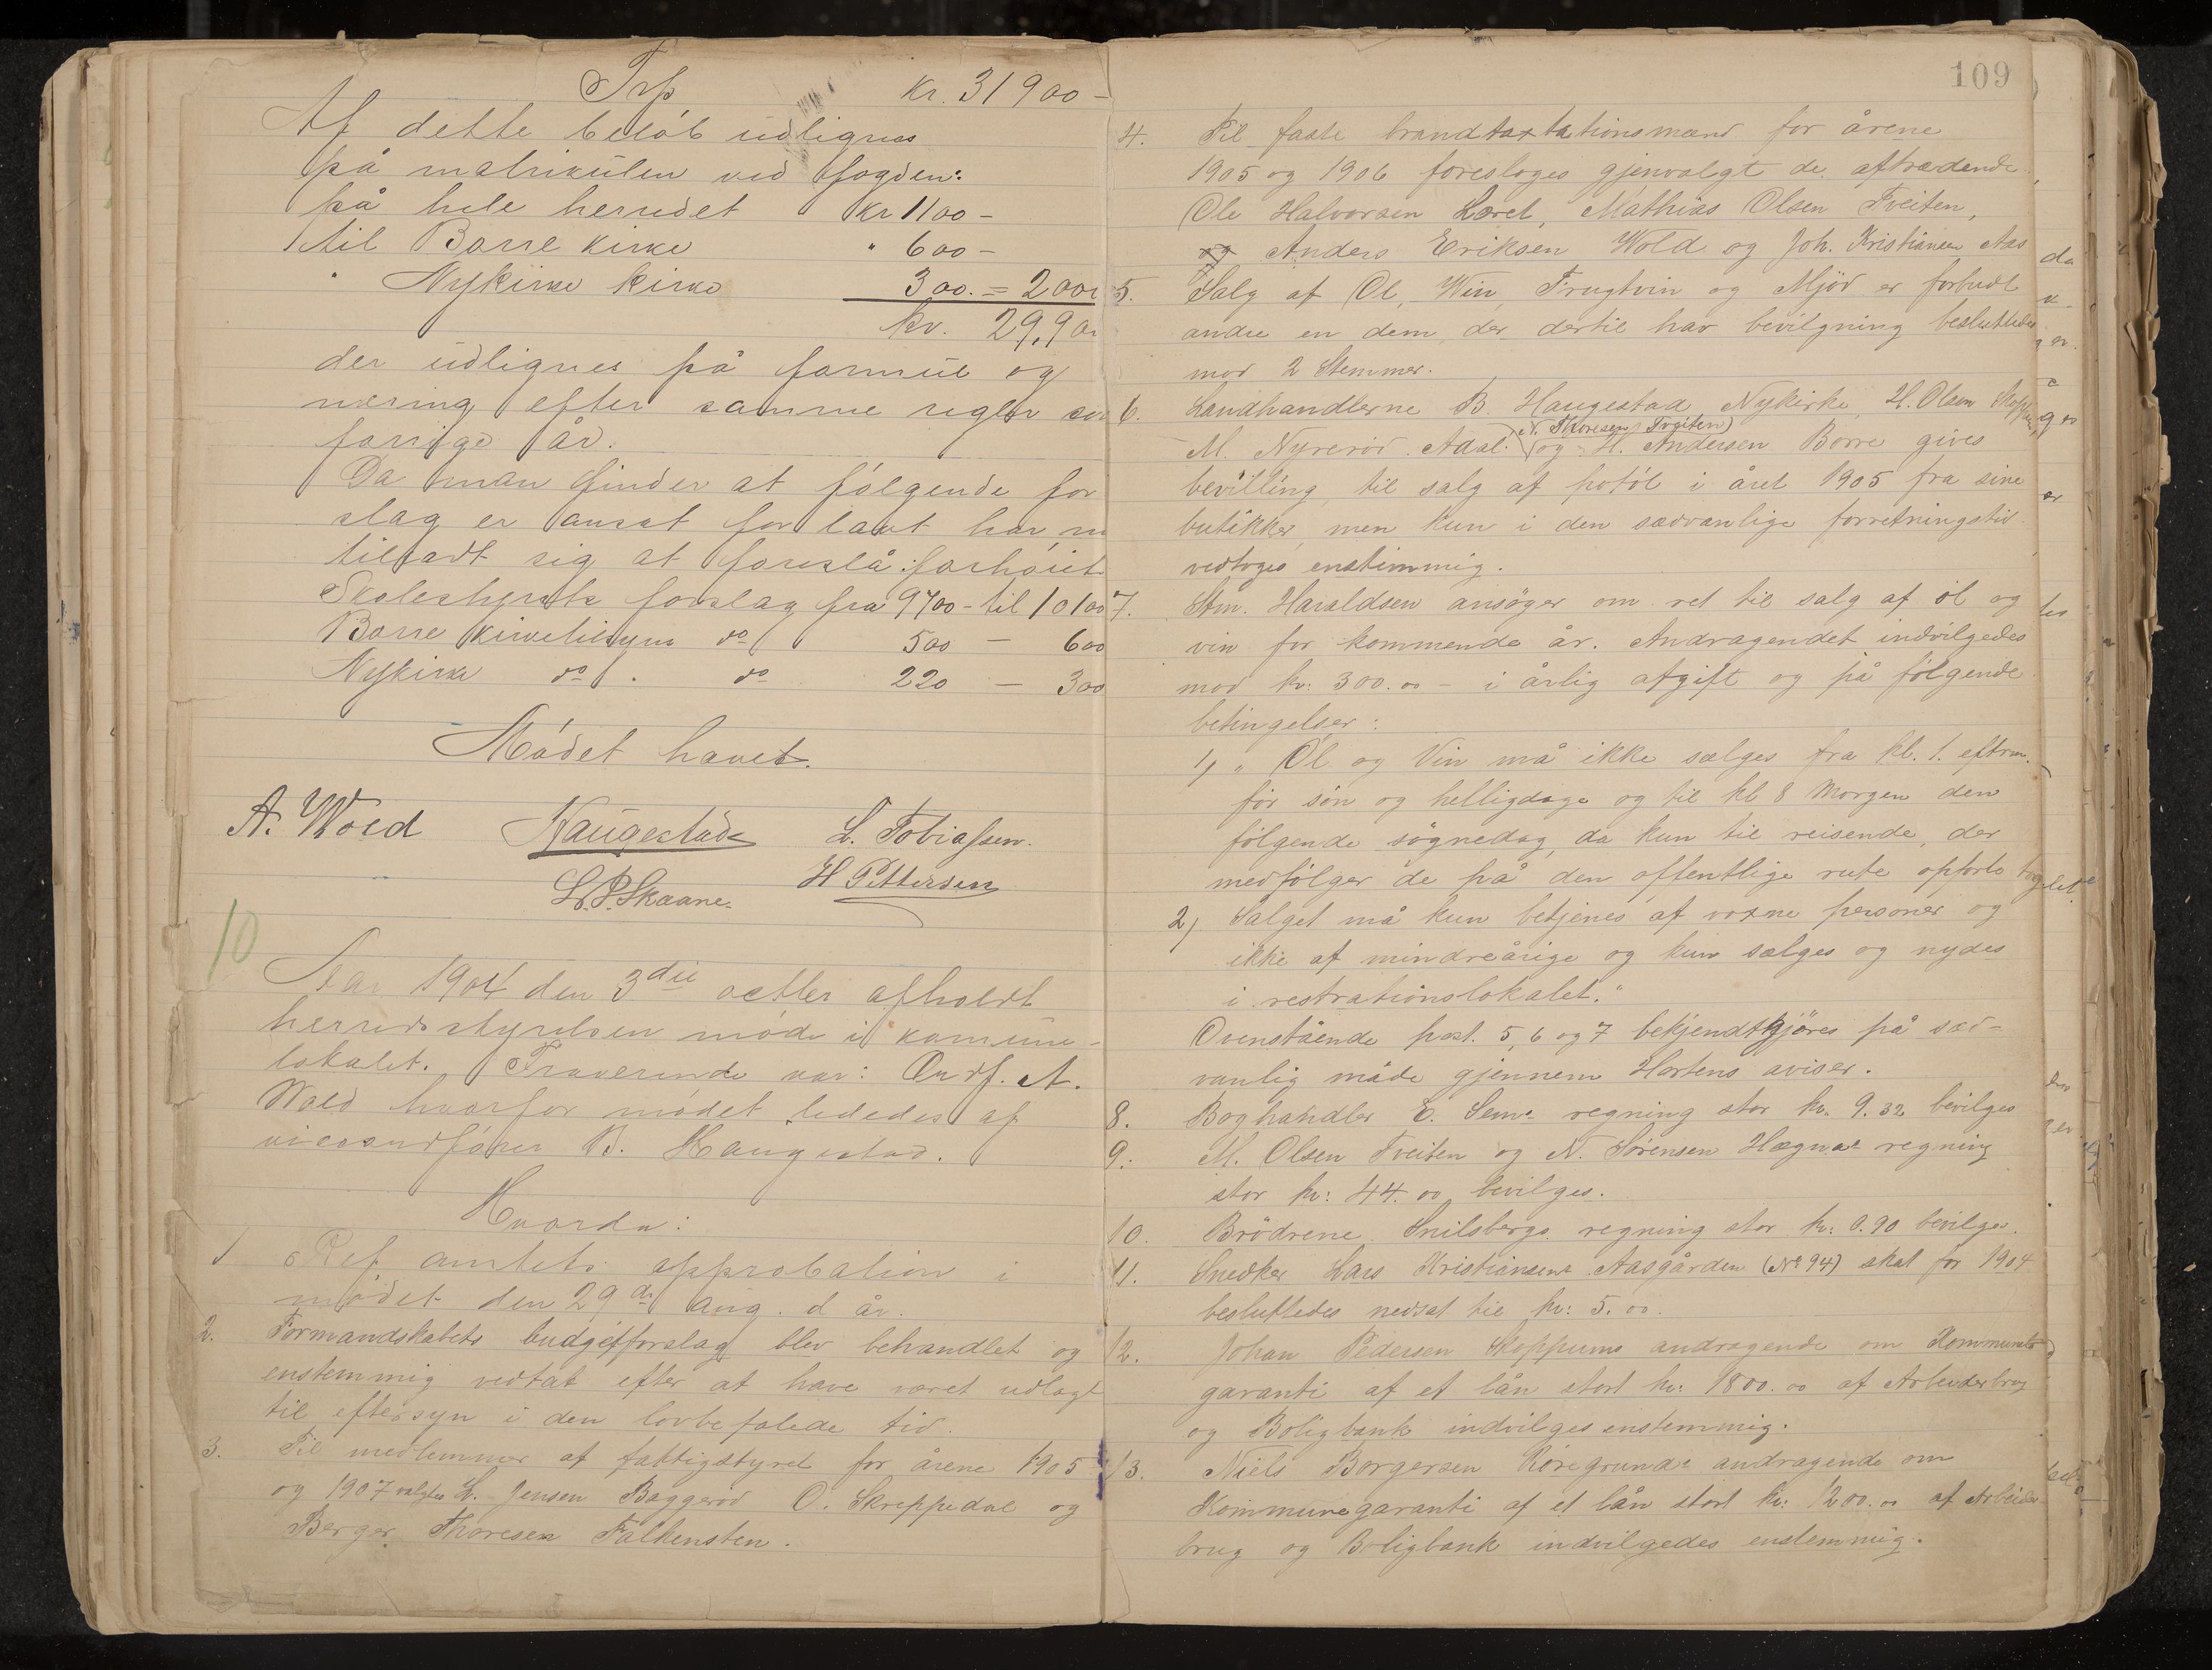 Trp kr. 31900-
Af dette beløb udlignes
på matrikulen ved fogden:
på hele herredet Kr 1100 -
til Borre kirke " 600 -
" Nykirke kirke 300. = 2000
kr. 29,900
der udlignes på formue og
næring efter samme regler som
forrige år.
Da man finder at følgende for
slag er ansat for lavt har m
tilladt sig at foreslå: forhøiet
Skolestyrets forslag fra 9700 - til 10100
Borre kirketilsyns do 500 - 600
Nykirke do . do 220 - 300
Mødet hævet.
A. Wold Haugestad L. Tobiassen.
L. P. Skaane. H Pettersen
10
Aar 1904 den 3die octber afholdt
herredsstyrelsen møde i komune-
lokalet. Fraværende var: Ordf. A.
Wold hvorfor mødet lededes af
viceordfører B. Haugestad.
Hvorda:
1 Ref amtets approbation i
mødet den 29de aug. d år.
2. Formandskabets budgetforslag blev behandlet og
enstemmig vedtat efter at have været udlagt
til eftersyn i den lovbefalede tid.
3. Til medlemmer af fattigstyret for årene 1905
og 1907 valgtes L. Jensen Baggerød O. Skreppedal og
Berger Thoresen Falkensten.
109
4. Til faste brandtaxtationsmænd for årene
1905 og 1906 foresloges gjenvalgt de aftrædende
Ole Halvorsen Loret, Mathias Olsen Tveiten,
og Anders Eriksen Wold og Joh. Kristiansen Aas
5. Salg af Øl, Win, Frugtvin og Mjød er forbudt
andre en dem, der dertil har bevilgning besluttedes
mod 2 Stemmer.
6. Landhandlerne B. Haugestad Nykirke, H. Olsen Skoppum,
N. Thoresen Tveiten)
M. Nyrerød Adal. og H. Andersen Borre gives
bevilling til salg af potøl i året 1905 fra sine
butikker, men kun i den sædvanlige forretningstid
vedtoges enstimmig.
7. Stm. Haraldsen ansøger om ret til salg af øl og
vin for kommende år. Andragendet indvilgedes
mod kr: 300.00 - i årlig afgift og på følgende
betingelser:
1, " Øl og Vin må ikke sælges fra kl. 1. eftrm.
før søn og helligdage og til kl 8 Morgen den
følgende søgnedag, da kun til reisende, der
medfølger de på den offentlige rute opførte tog
2, Salget må kun betjenes af voxne personer og
ikke af mindreårige og kun sælges og nydes
i restrationslokalet."
Ovenstående post. 5, 6 og 7 bekjendtgjøres på sæd-
vanlig måde gjennem Hortens aviser.
8. Boghandler E. Sems regning stor kr. 9.32 bevilges
9. M. Olsen Tveiten og N. Sørensen Hægnas regning
stor kr: 44.00 bevilges.
10. Brødrene Snilsbergs regning stor kr: 0.90 bevilges.
11. Snedker Lars Kristiansens Aasgården (No 94) skat for 1904
besluttedes nedsat til kr: 5.00.
12. Johan Pedersen Skoppums andragende om Kommunes
garanti af et lån stort kr: 1800.00 af Arbeiderbrug
og Boligbank indvilges enstemmig.
13. Niels Borgersen Røregrunds andragende om
Kommunegaranti af et lån stort kr: 1200.00 af Arbeider-
brug og Boligbank indvilgedes enstemmig.